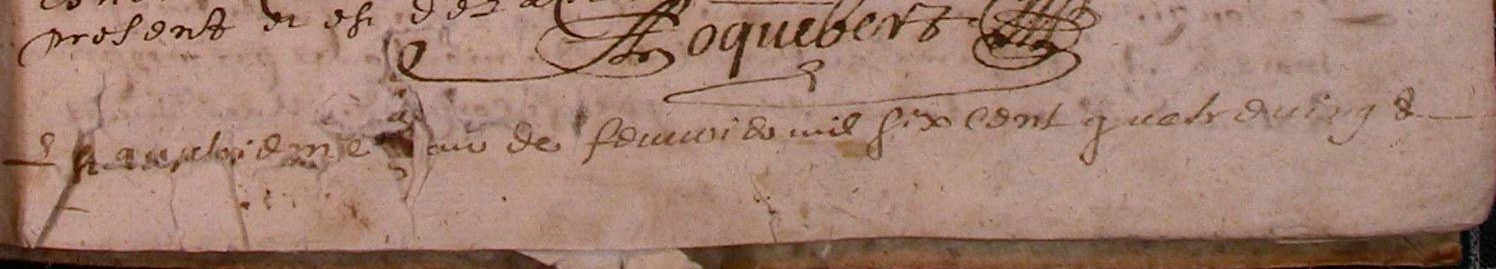 present et es
Roquebert
quatrieme jour de feuurier mil six cent quatre uingt